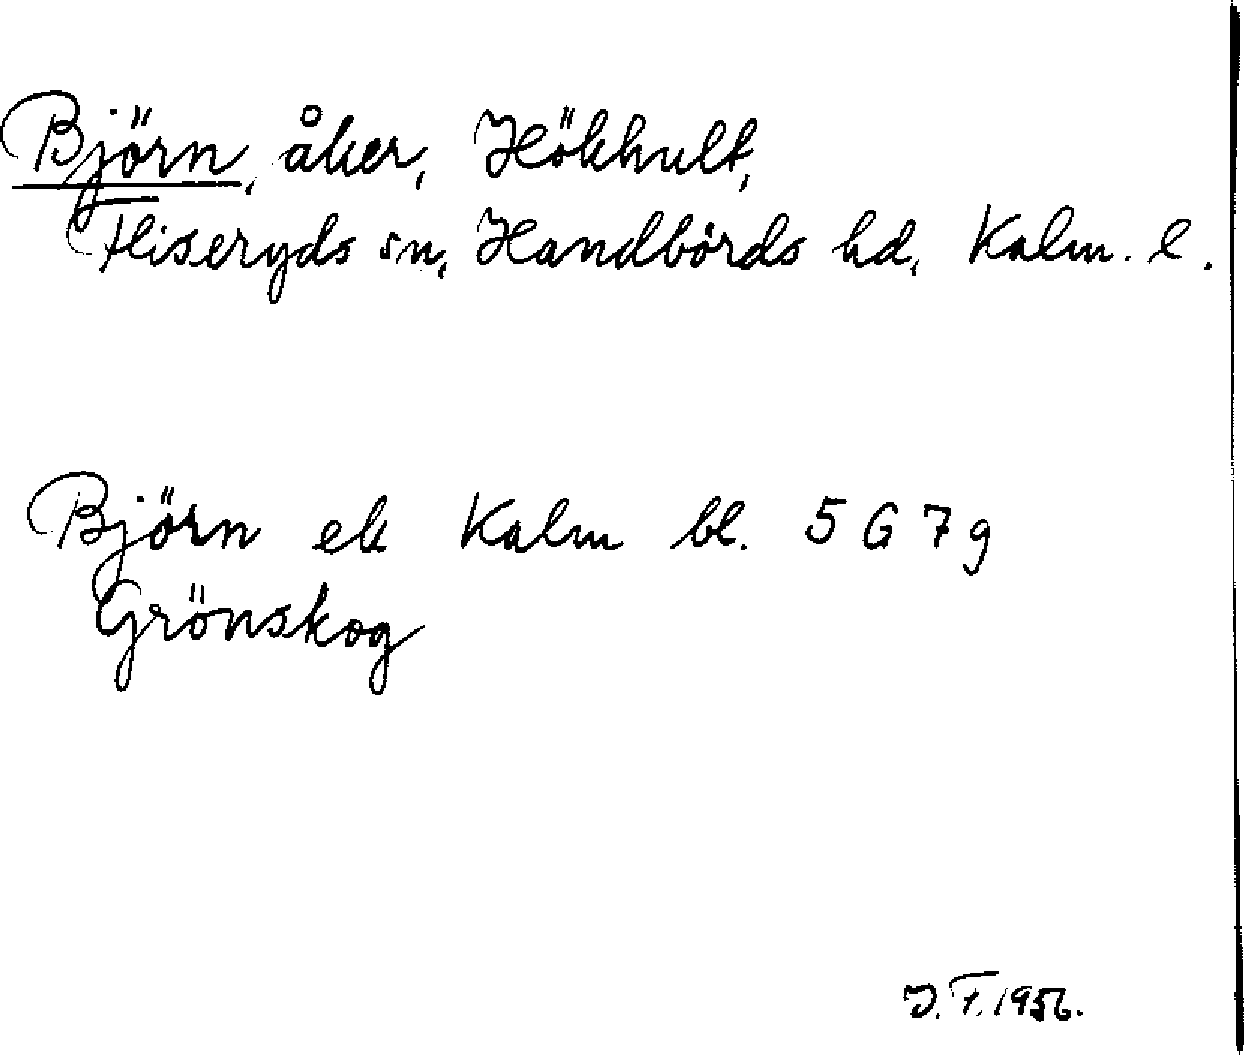 Björn, åker, Hökhult,
Fliseryds sn, Handbörds hd, Kalm. l.
Björn ek Kalm bl. 5 G 7 g
Grönskog
J. F. 1956.